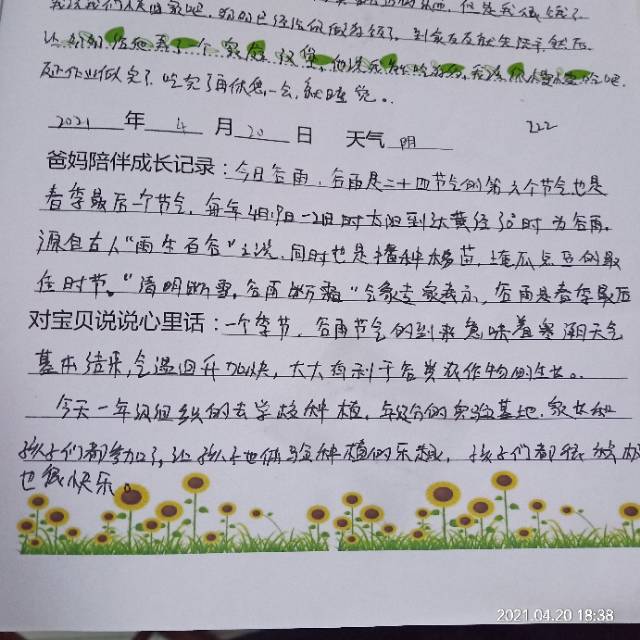 我说我们一起回家吧，奶奶已经给你做好饭了，到家
让奶奶给他弄了一个家庭汉堡，
还作业做完了，吃完了再休息一会，就睡觉。
2021年4月20日 天气 阴 222
爸妈陪伴成长记录：今日谷雨，谷雨是二十四节气的第六个节气也是
春季最后一个节气，每年4月19日-21日时太阳到达黄经30°时为谷雨。
源自古人"雨生百谷"之说，同时也是播种移苗，埯瓜点豆的最
佳时节。"清明断雪，谷雨断霜"气象专家表示，谷雨是春季最后
对宝贝说说心里话：一个季节，谷雨节气的到来意味着寒潮天气
基本结束，气温回升加快，大大有利于谷类农作物的生长。
今天一年级组织的去学校种植，年级分的实验基地，家长和
孩子们都参加了，让孩子也体验种植的乐趣，孩子们都很积极
也很快乐。
2021.04.20 18:38